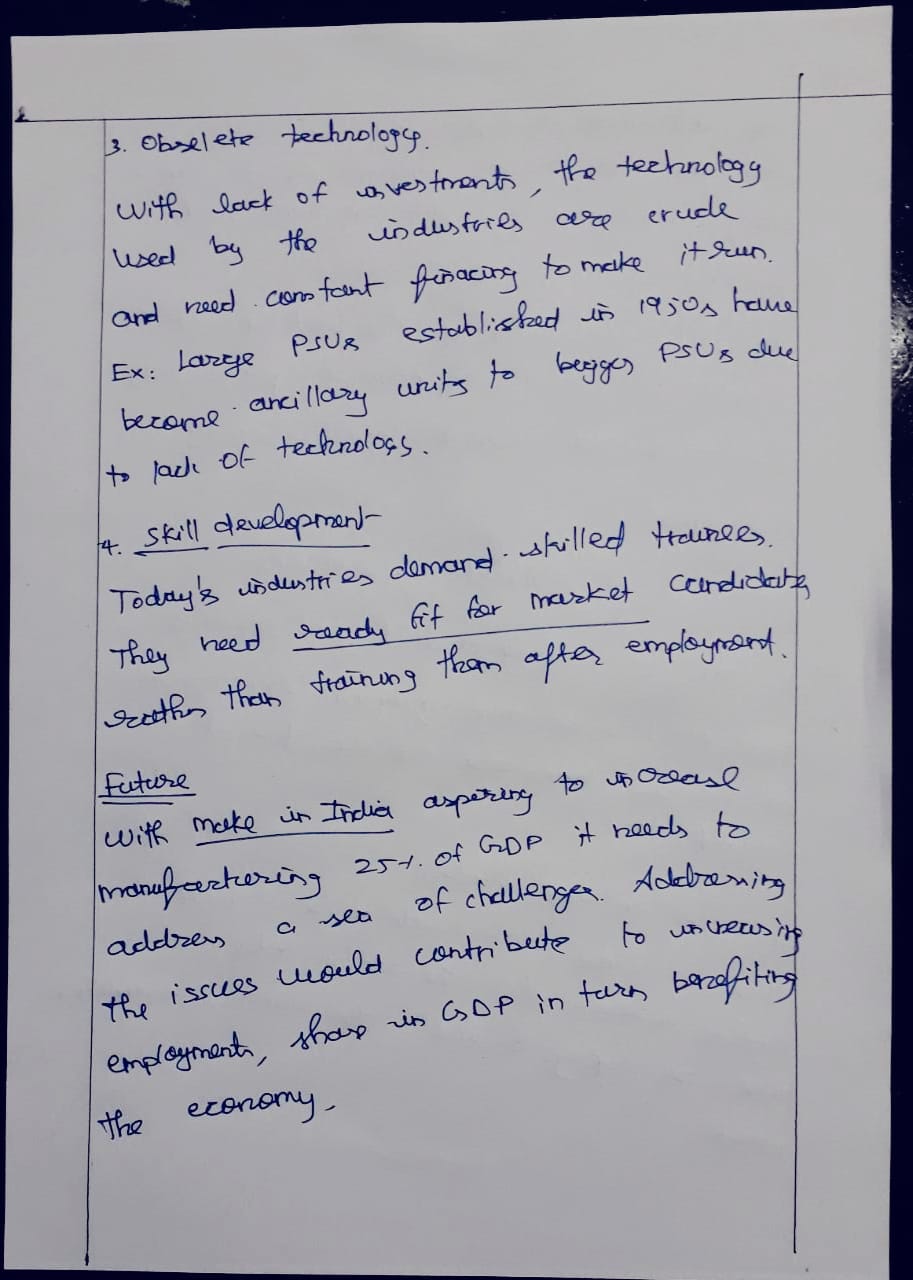 3. Obselete technology.
With lack of investments, the technology
used by the industries are crude
and need constant finacing to make it run.
Ex: Large PSUs established in 1950s have
become ancillary units to bigger PSUs due
to lack of technology.
4. Skill development
Today's industries demand skilled trainees.
They need ready fit for market candidates
rather than training them after employment.
Future
With make in India aspering to increase
manufacturing 25%. of GDP it needs to
address a sea of challenges. Addressing
the issues would contribute to increasing
employments, share in GDP in turn benefiting
the economy.